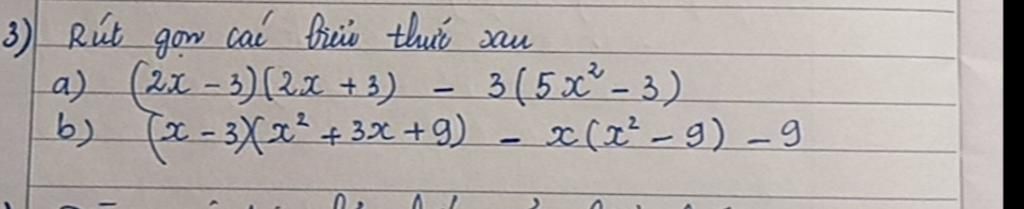 3) Rút gọn các biểu thức sau
a) (2x - 3)(2x + 3) - 3(5x² - 3)
b) (x - 3)(x² + 3x + 9) - x(x² - 9) - 9